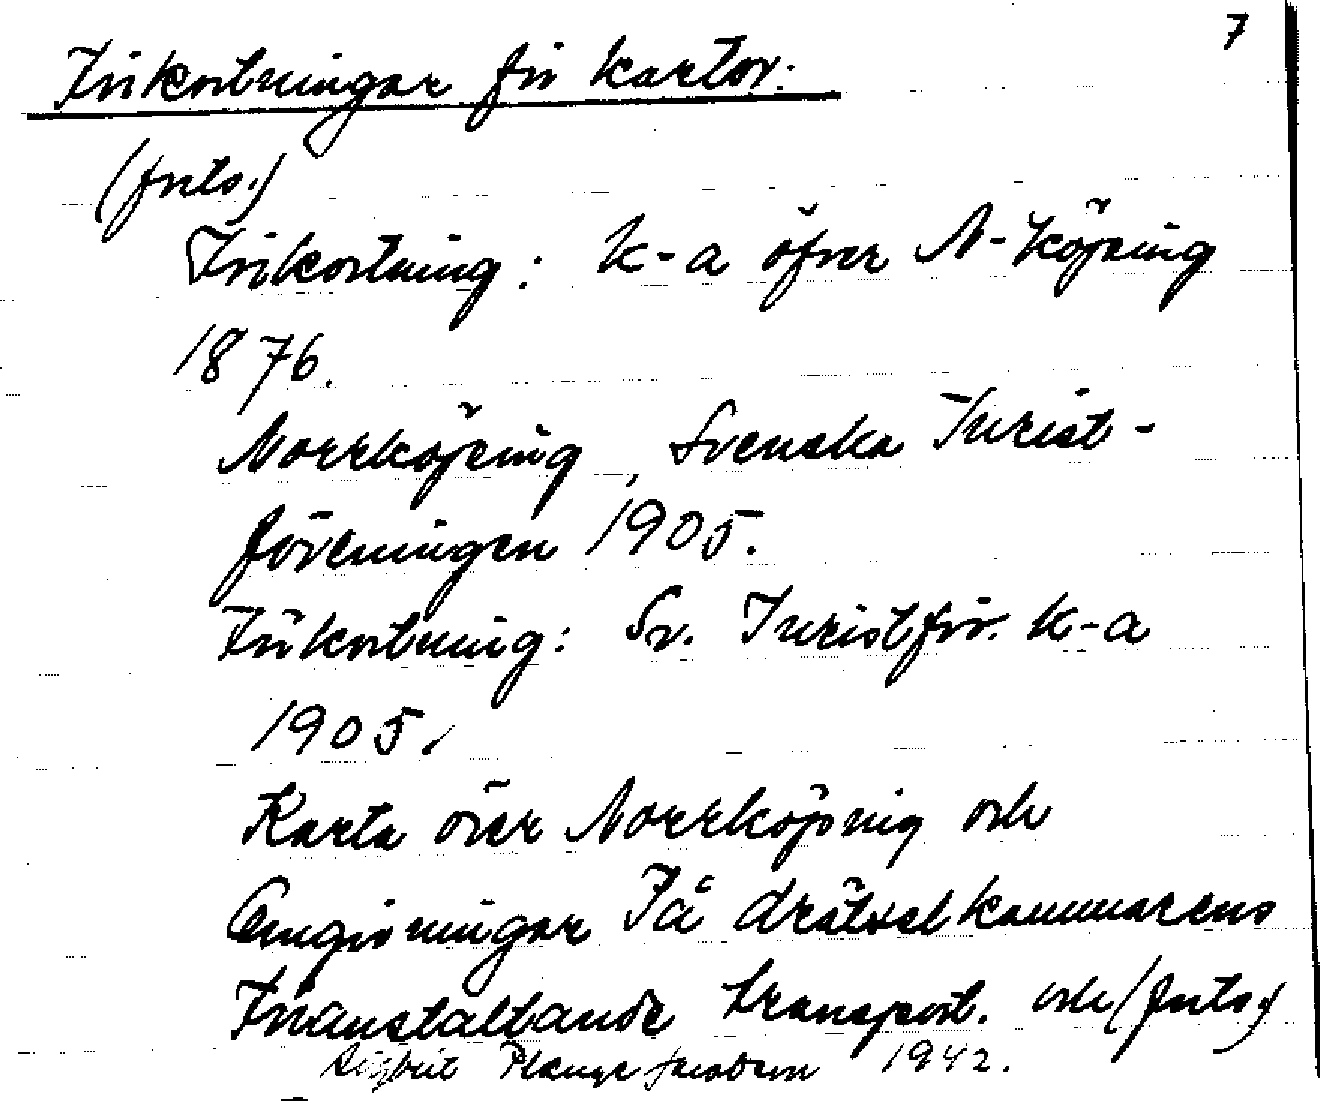 7
Förkortningar för kartor.
(forts.)
Förkortning: K-a öfver N-köping
1876.
Norrköping, Svenska Turist-
föreningen 1905.
Förkortning: Sv. Turistför. K-a
1905.
Karta över Norrköping och
Omgivningar På drätselkammarens
Föranstaltande transport. och (forts.)
1942.